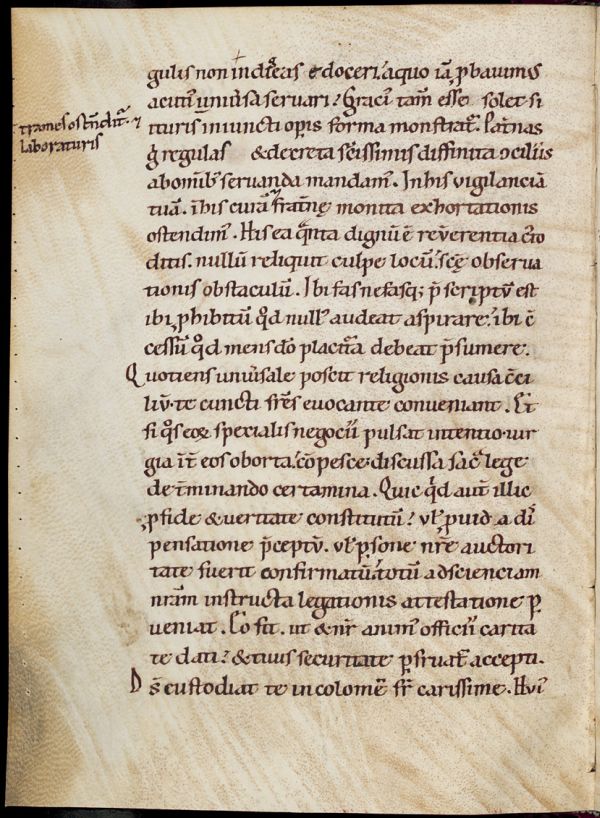 gulis non indiẽas edoceri. a quo iã ꝓbauimꝰ
acuti᷒ uniũsa seruari? Graci᷒ tam̃ esse solet si
trames ostñdit᷒ ⁊
laboraturis
ituris iniuncti opis forma monstrat᷒. Pat̃nas
g̃ regulas & decreta sc̃issimis diffinita ↄciliis
ab omib᷒ seruanda mandam᷒. In his vigilanciã
tuã. ĩ his curã frat̃nę monita exhortationis
ostendim᷒. His ea q̃nta dignũ ẽ reũerentia c᷒to
ditis. nullũ reliquit culpe locũ. scę obserua
tionis obstaculũ. Ibi fas nefasq; p̃scriptũ est
ibi ꝓhibitũ qd̃ null᷒ audeat aspirare. ibi ↄ̃
cessũ qd̃ mens dõ placit᷒a debeat p̃sumere.
Quotiens uniũsale poscit religionis causa ↄ̃ci
liũ. te cuncti fr̃es euocante conueniant. Et
si q᷒s eoꝝ specialis negocii pulsat intentio. iur
gia int̃ eos oborta. cõpesce. discussa sac᷒ lege
det̃minando certamina. Quicq᷒d aut̃ illic
ꝓ fide & ueritate constitutũ? ul̃ ꝓuida di᷒
pensatione p̃ceptũ. ul̃ ꝑsone nr̃e auctori
tate fuerit confirmatũ. totũ ad scienciam
nrãm instructa legationis attestatione ꝑ
ueniat. Eo fit. ut & nr̃ anim᷒ officii carita
te dati? & tuus securitate ꝑfruat᷒ accepti.
Ds̃ custodiat te incolomẽ fr̃ carissime. Hui᷒